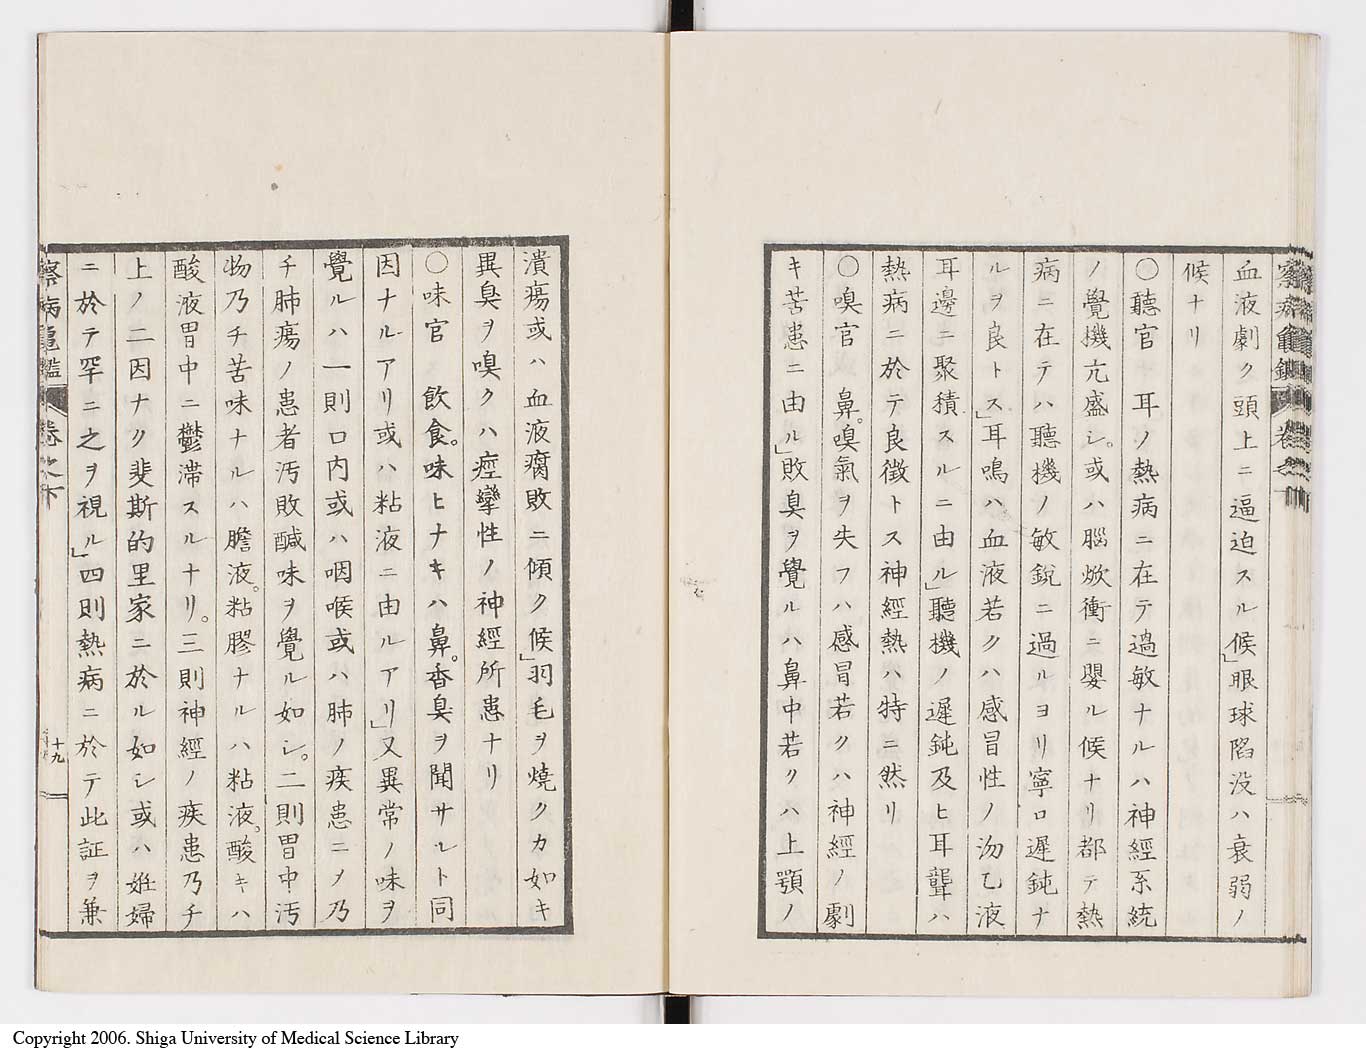 血液劇ク頭上ニ逼迫スル候」眼球陷没ハ衰弱ノ
候ナリ
〇聽官　耳ノ熱病ニ在テ過敏ナルハ神經系統
ノ覺機亢盛シ。或ハ腦焮衝ニ嬰ル候ナリ都テ熱
病ニ在テハ聽機ノ敏銳ニ過ルヨリ寧ロ遲鈍ナ
ルヲ良トス」耳鳴ハ血液若クハ感冒性ノ沕乙液
耳邊ニ聚積スルニ由ル」聽機ノ遲鈍及ヒ耳聾ハ
熱病ニ於テ良徴トス神經熱ハ特ニ然リ
〇嗅官　鼻。嗅氣ヲ失フハ感冒若クハ神經ノ劇
キ苦患ニ由ル」敗臭ヲ覺ルハ鼻中若クハ上顎ノ
潰瘍或ハ血液腐敗ニ傾ク候」羽毛ヲ燒クカ如キ
異臭ヲ嗅クハ痙攣性ノ神經所患ナリ
〇味官　飲食。味ヒナキハ鼻。香臭ヲ聞サルト同
因ナルアリ或ハ粘液ニ由ルアリ」又異常ノ味ヲ
覺ルハ一則口内或ハ咽喉或ハ肺ノ疾患ニメ乃
チ肺瘍ノ患者汚敗鹹味ヲ覺ル如シ。二則胃中汚
物乃チ苦味ナルハ膽液。粘膠ナルハ粘液。酸キハ
酸液胃中ニ鬱滯スルナリ。三則神經ノ疾患乃チ
上ノ二因ナク斐斯的里家ニ於ル如シ或ハ姙婦
ニ於テ罕ニ之ヲ視ル」四則熱病ニ於テ此証ヲ兼
察病亀鑑　卷之下
十九
Copyright 2006. Shiga University of Medical Science Library